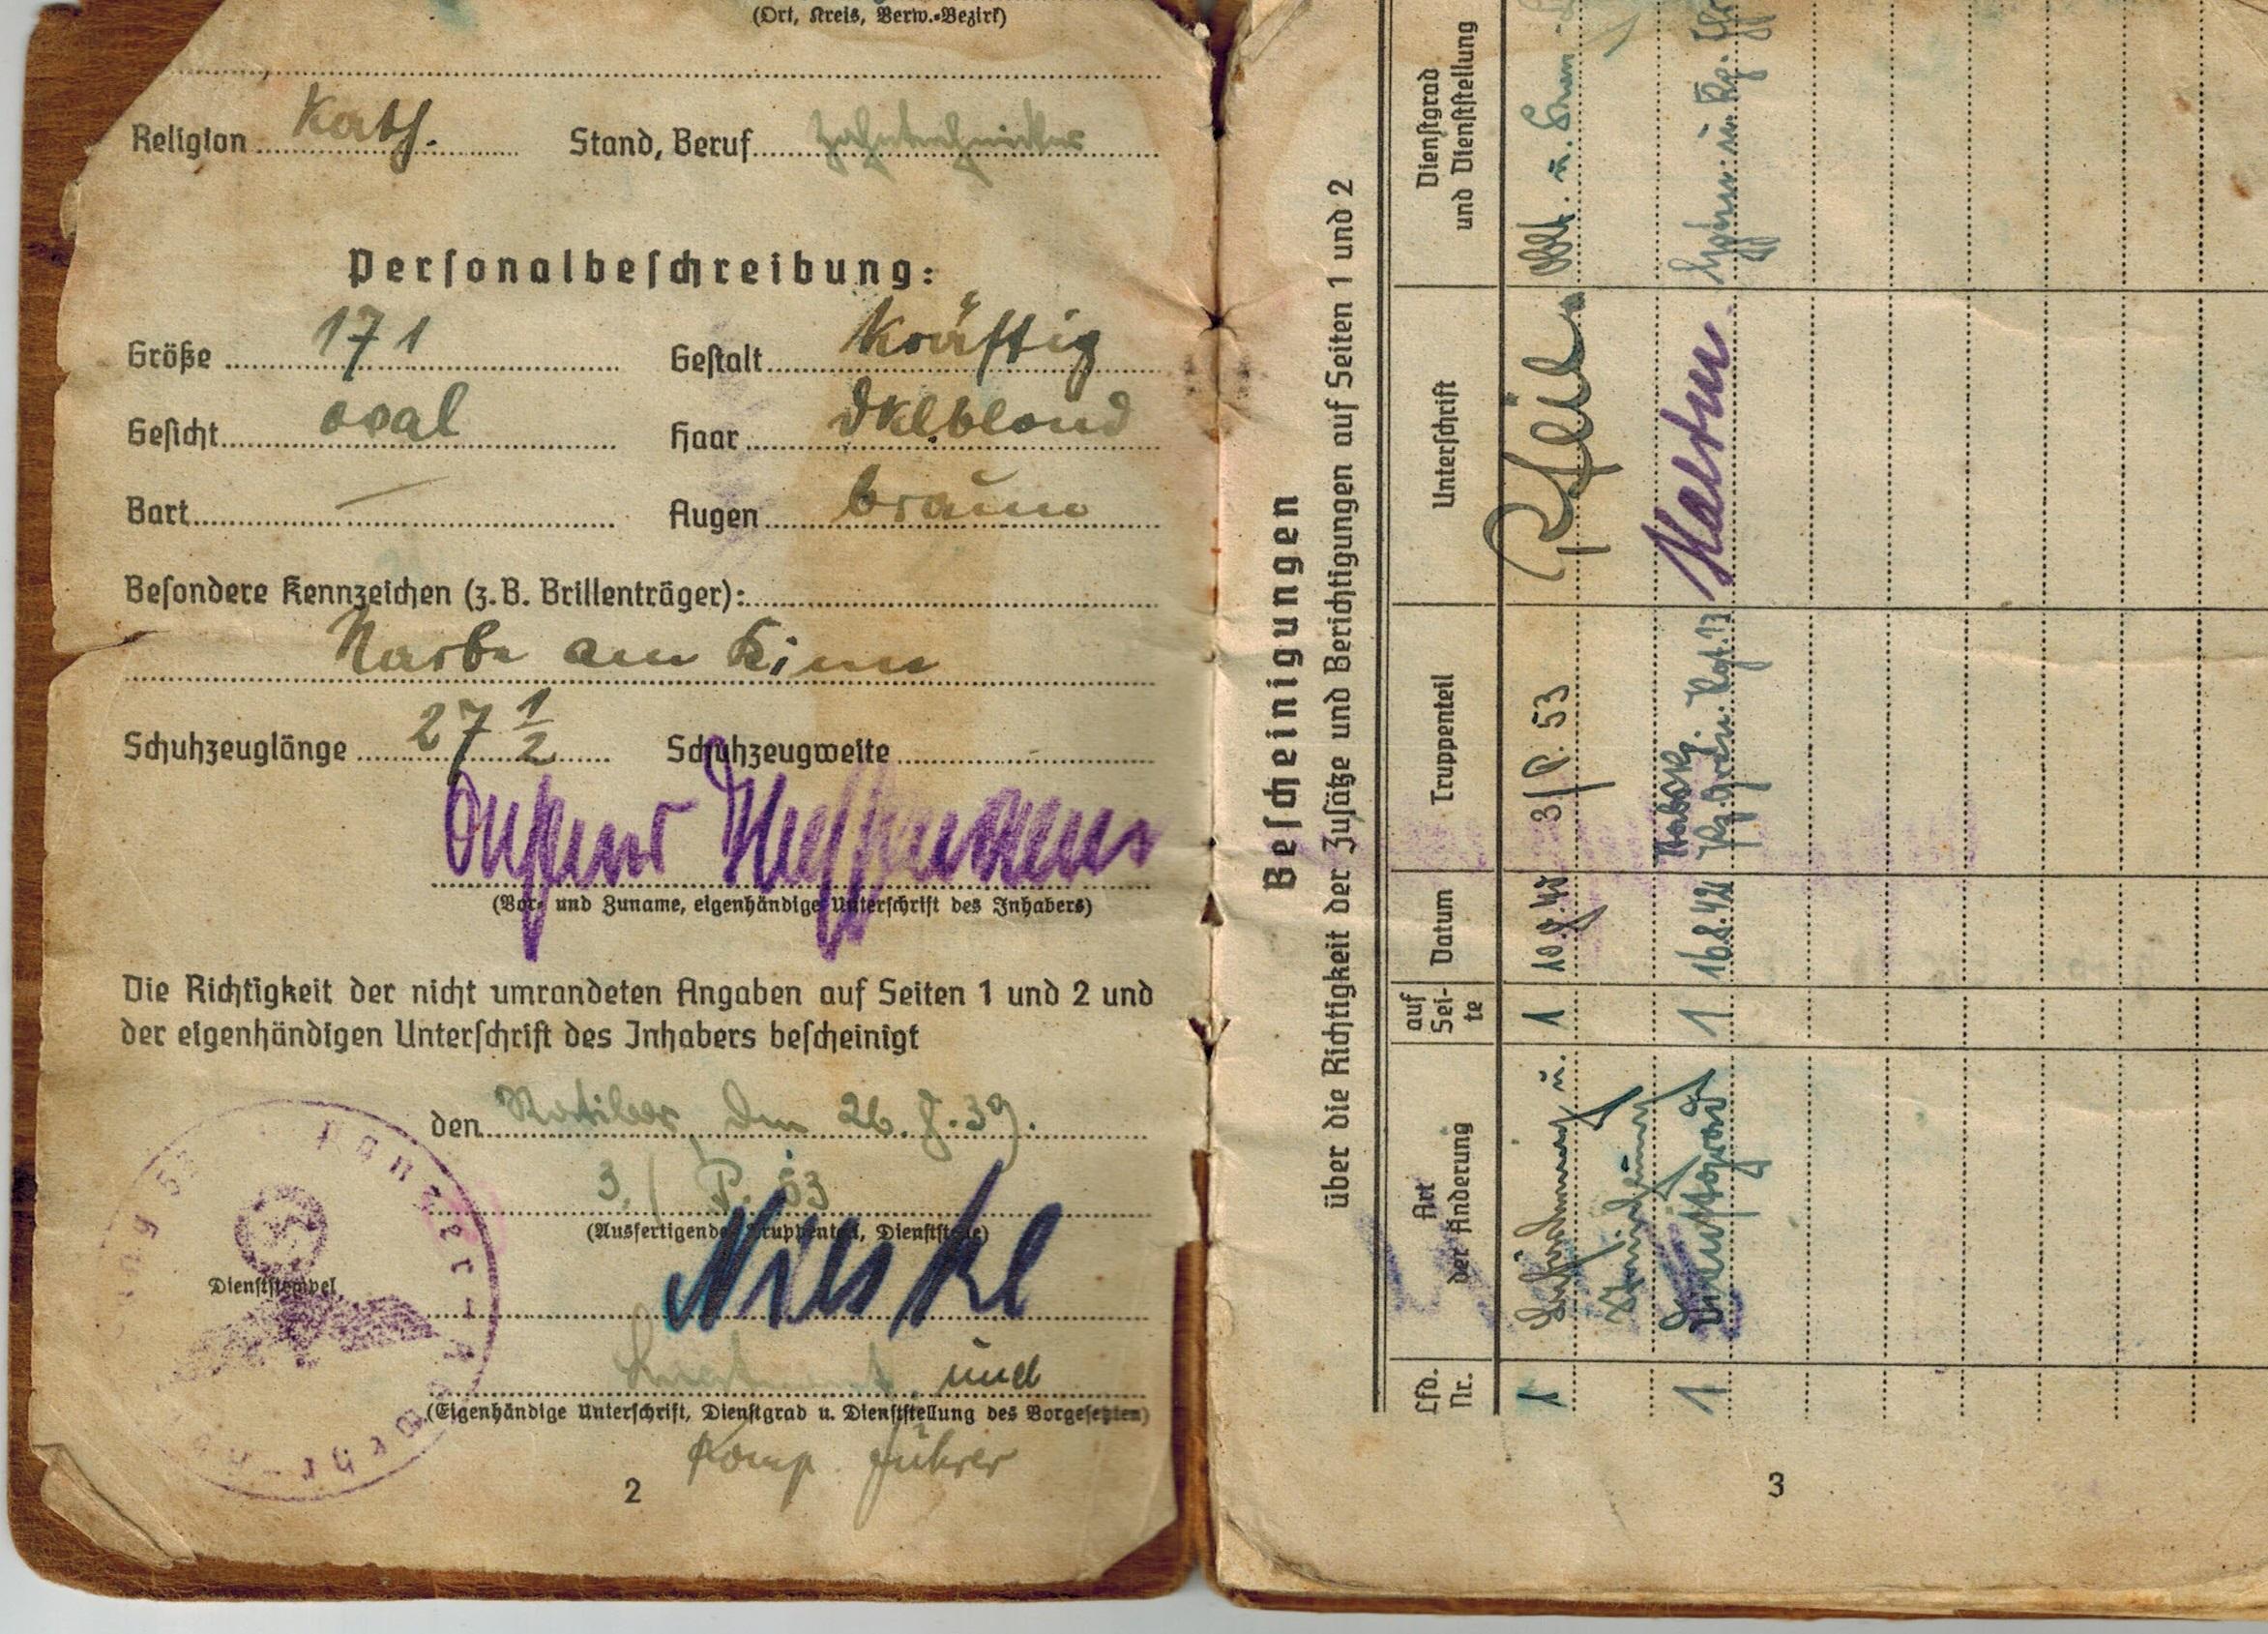 (Ort, Kreis, Verw.-Bezirk)
Religion Kath. Stand, Beruf Zahntechniker
Personalbeschreibung:
Größe 171 Gestalt kräftig
Gesicht oval Haar dklblond
Bart — Augen braun
Besondere Kennzeichen (z.B. Brillenträger):
Narbe am Kinn
Schuhzeuglänge 27 1/2 Schuhzeugweite -
(Vor- und Zuname, eigenhändige Unterschrift des Inhabers)
Die Richtigkeit der nicht umrandeten Angaben auf Seiten 1 und 2 und
der eigenhändigen Unterschrift des Inhabers bescheinigt
den Ratibor, den 26.8.39.
3./P. 53
(Ausfertigender Truppenteil, Dienststelle)
Dienststempel
Leutnant und
(Eigenhändige Unterschrift, Dienstgrad u. Dienststellung des Vorgesetzten)
Komp. Führer
2
Bescheinigungen
über die Richtigkeit der Zusätze und Berichtigungen auf Seiten 1 und 2
Lfd. Nr.
Art der Änderung
auf Sei-te
Datum
Truppenteil
Unterschrift
Dienstgrad und Dienststellung
1 u. 1 3/P. 53
1 Dienstgrad 1 16.8.42
3